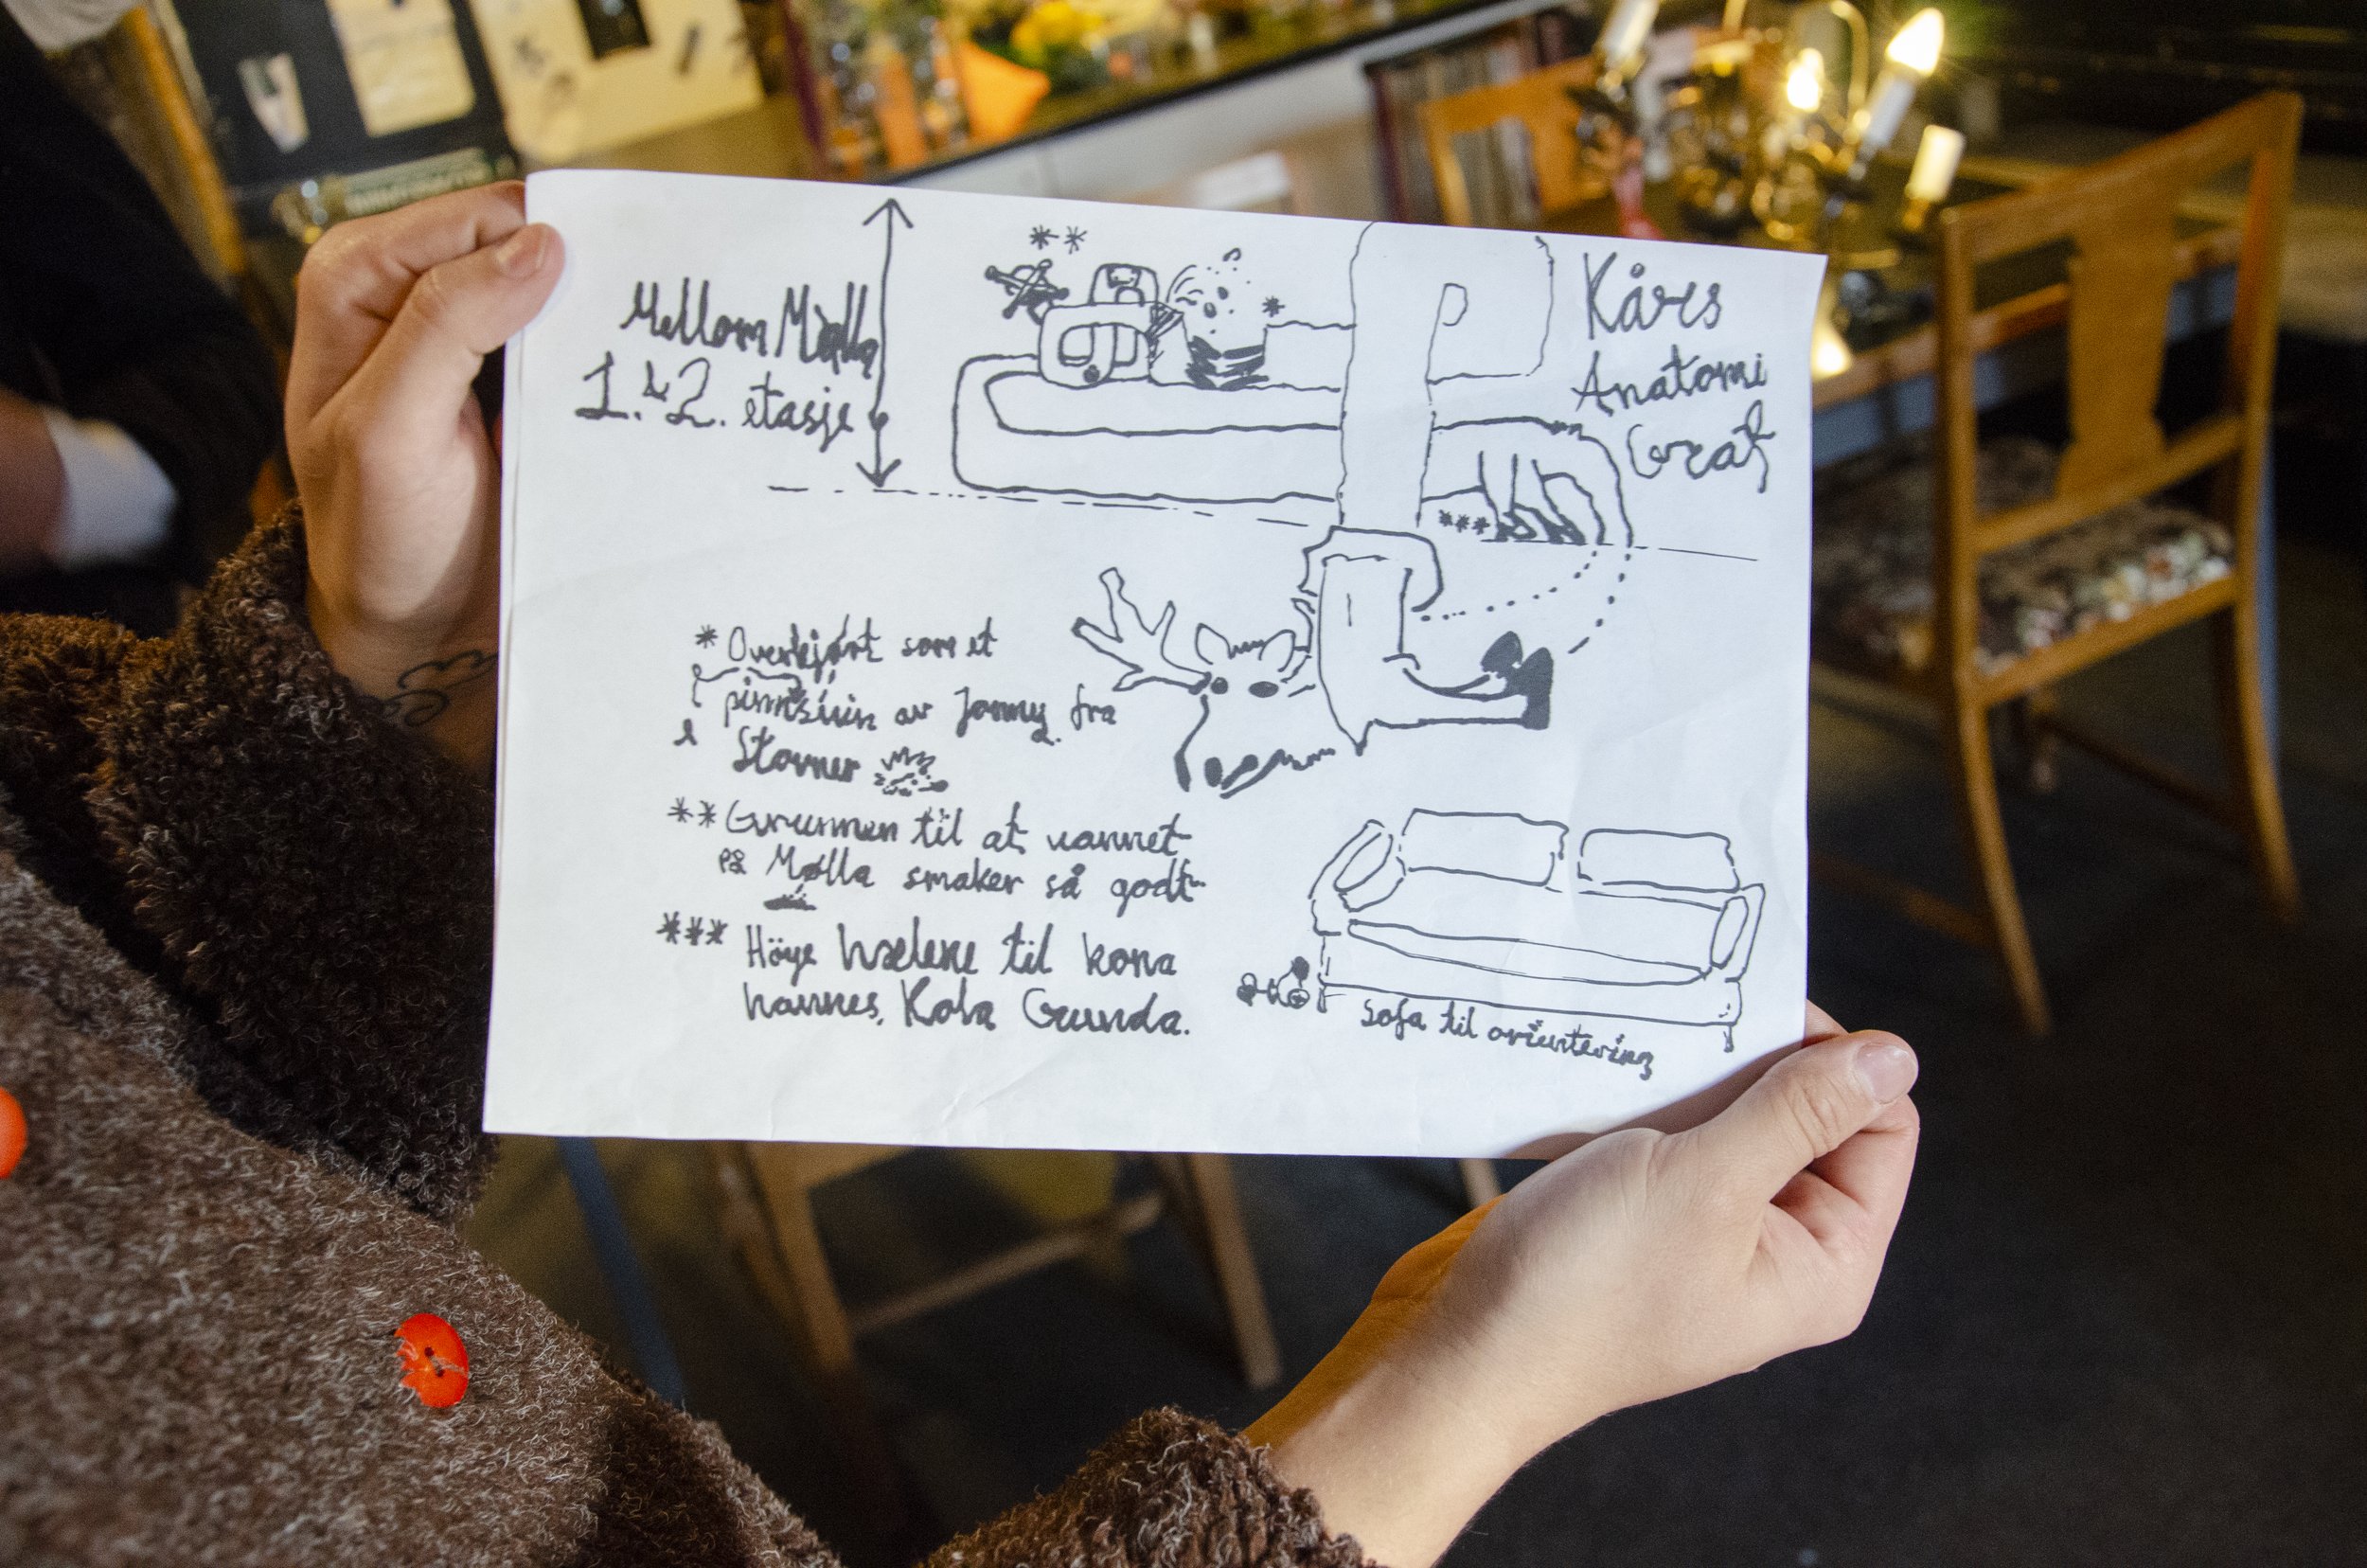 Mellom Mølla
1. & 2. etasje
Kårs
Anatomi
Graf
**
*
***
* Overkjørt som et
pinnsvin av Jonny fra
Stovner
** Grunnen til at vannet
på Mølla smaker så godt
*** Høye hælene til kona
hannes, Kola Grunda.
Sofa til orientering